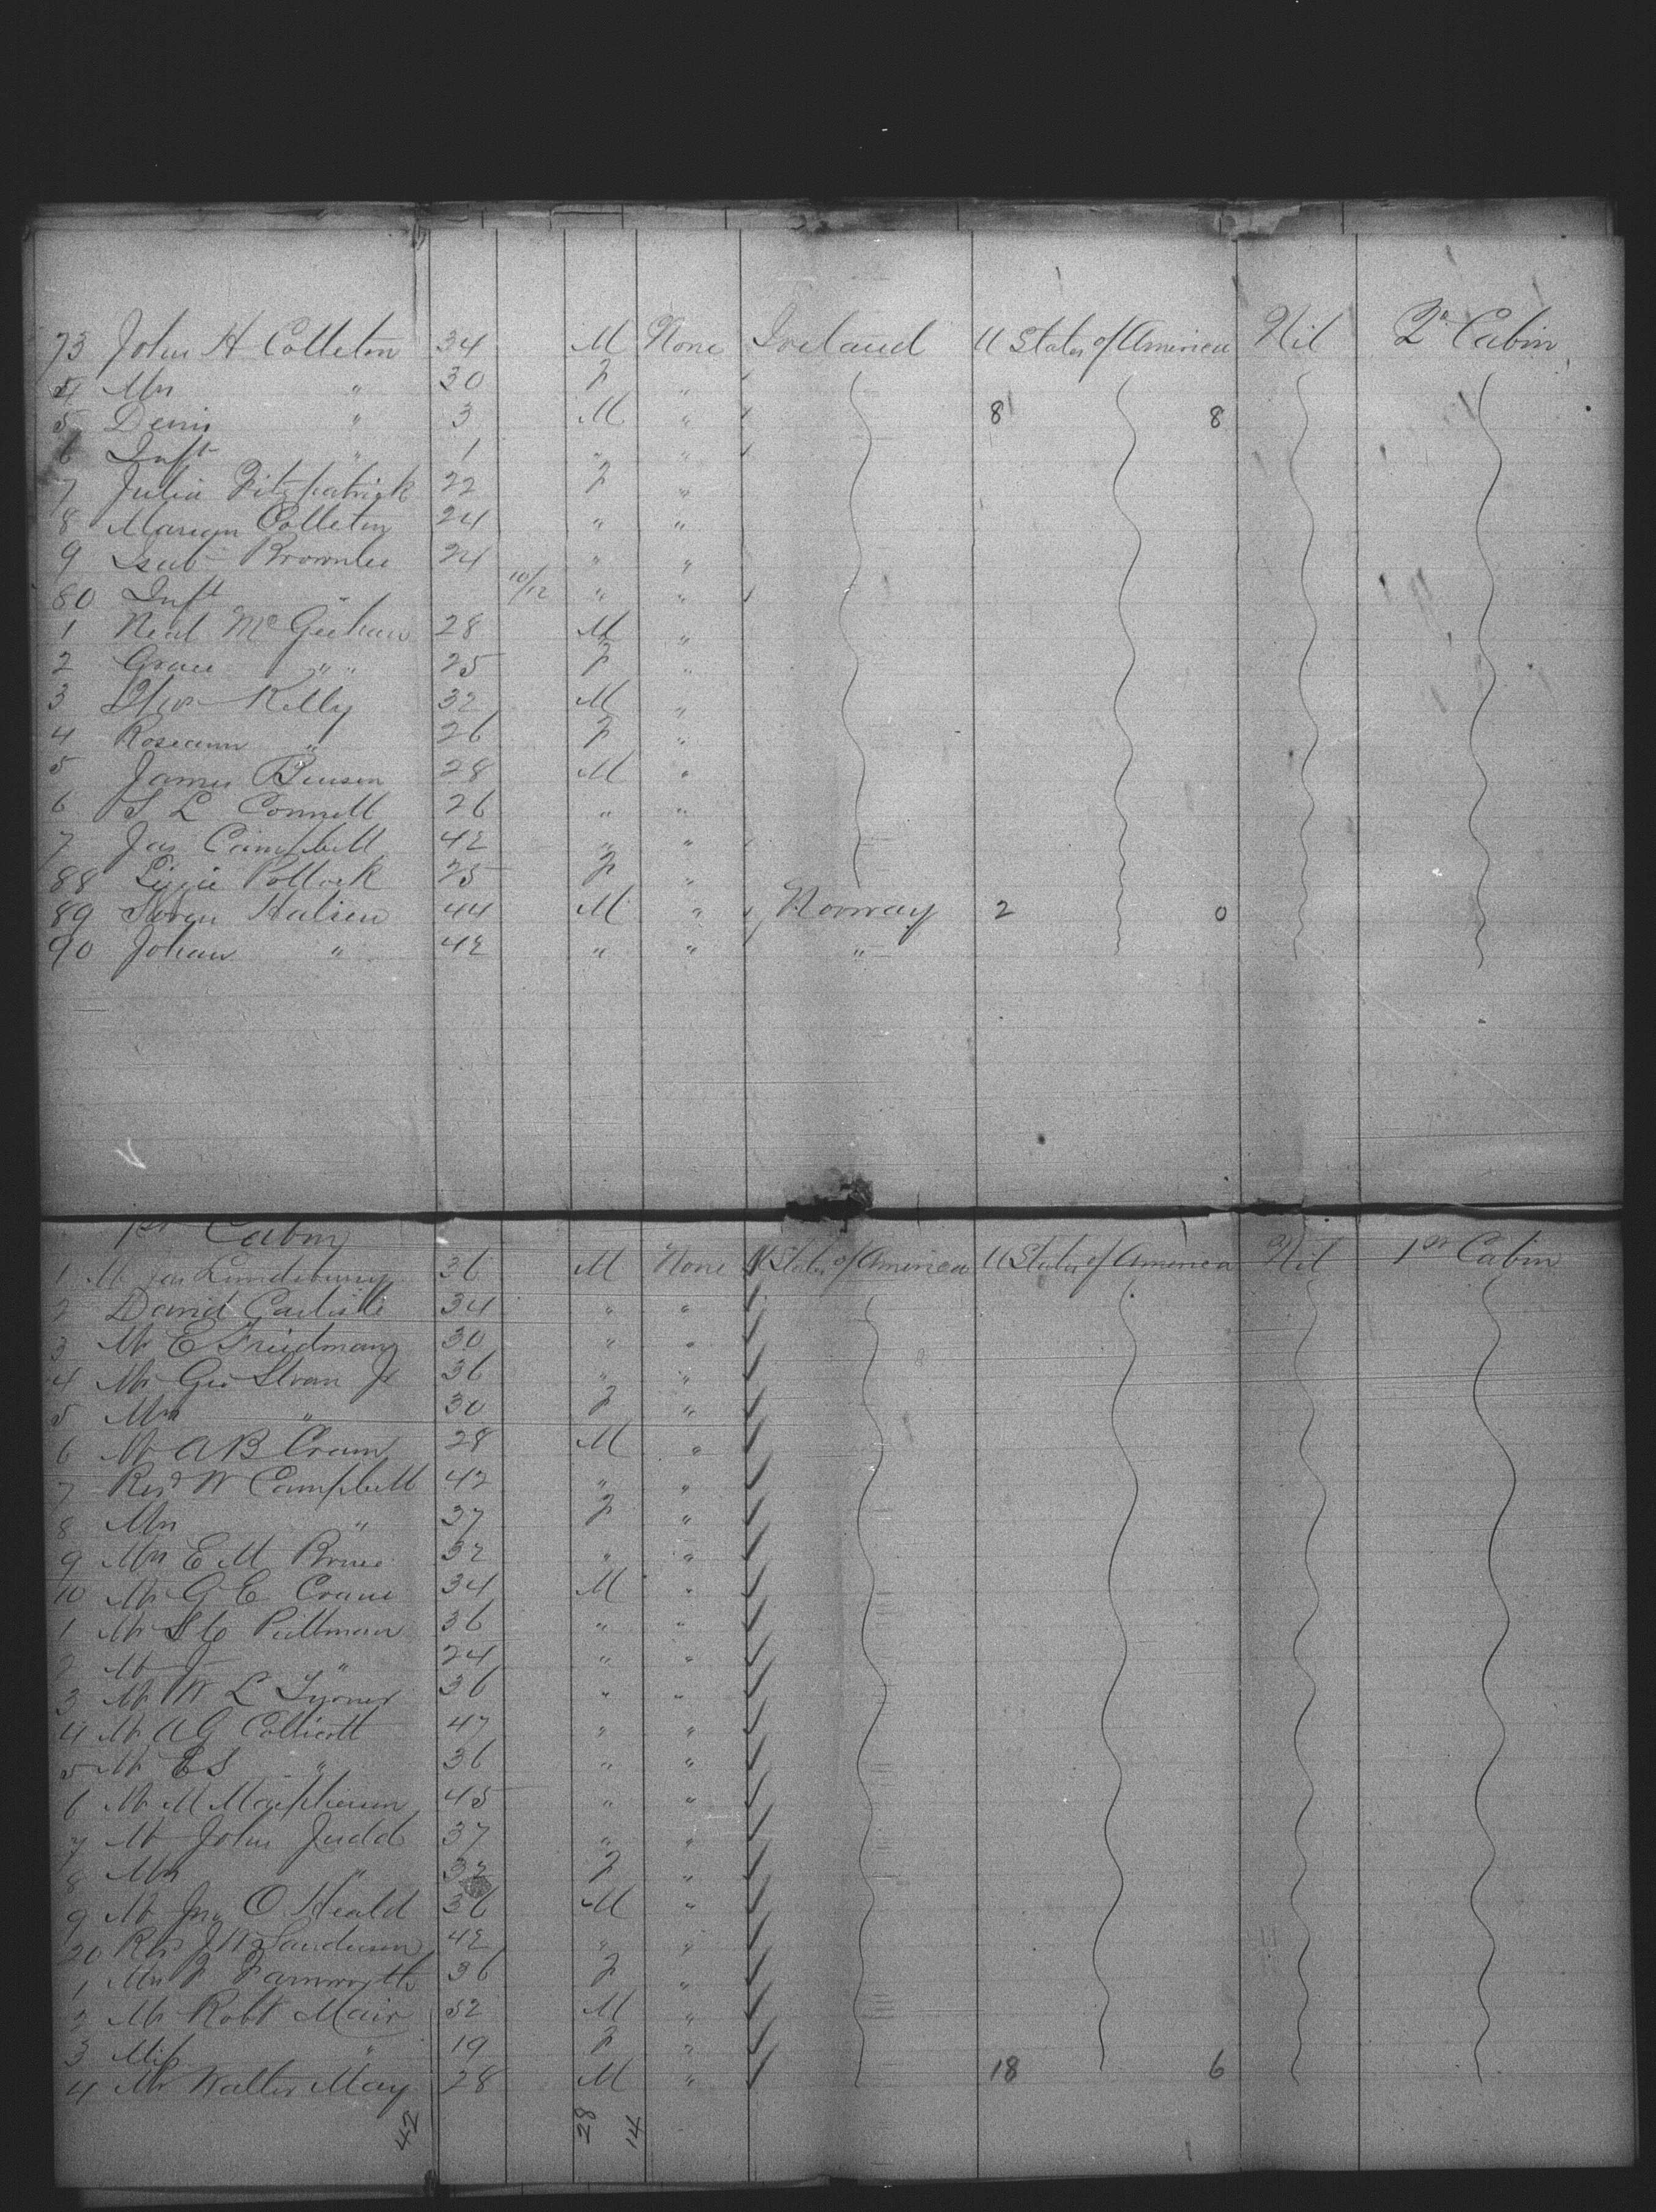 73 John H Colleton 34 M None Ireland U States of America Nil 2nd Cabin
4 Mrs " 30 F "
5 Denis " 3 M " 8 8
6 Inft " 1 " "
7 Julia Fitzpatrick 22 F "
8 Colleton 24 " "
9 Isab Brownlee 24 " "
80 Inft " 10/12 " "
1 Neal McGeehan 28 M "
2 Grace " " 25 F "
3 Kelly 32 M "
4 Roseann " 26 F "
5 James Benson 28 M "
6 S L Connell 26 " "
7 Jas Campbell 42 " "
88 Lizzie Pollock 25 F "
89 44 M " Norway 2 0
90 Johan " 42 " " "
1st Cabin
1 Mr 36 M None U States of America U States of America Nil 1st Cabin
2 David Carlisle 34 " "
3 Mr E Friedman 30 " "
4 Mr Geo Sloan Jr 36 " "
5 Mrs " 30 F "
6 Mr A B Cram 28 M "
7 Revd W Campbell 42 " "
8 Mrs " 37 F "
9 Mrs E M Bruce 32 " "
10 Mr G E Crane 34 M "
1 Mr Pullman 36 " "
2 Mr J " 24 " "
3 Mr W L 36 " "
4 Mr A G Collicott 47 " "
5 Mr E S " 36 " "
6 Mr M Macpherson 45 " "
7 Mr John Judd 37 " "
8 Mrs " 32 F "
9 Mr Jno O Heald 36 M "
20 Revd J W Sanderson 42 " "
1 Mrs F Farnworth 36 F "
2 Mr Robt Mair 52 M "
3 Miss " 19 F "
4 Mr Walter May 28 M " 18 6
42 28 14